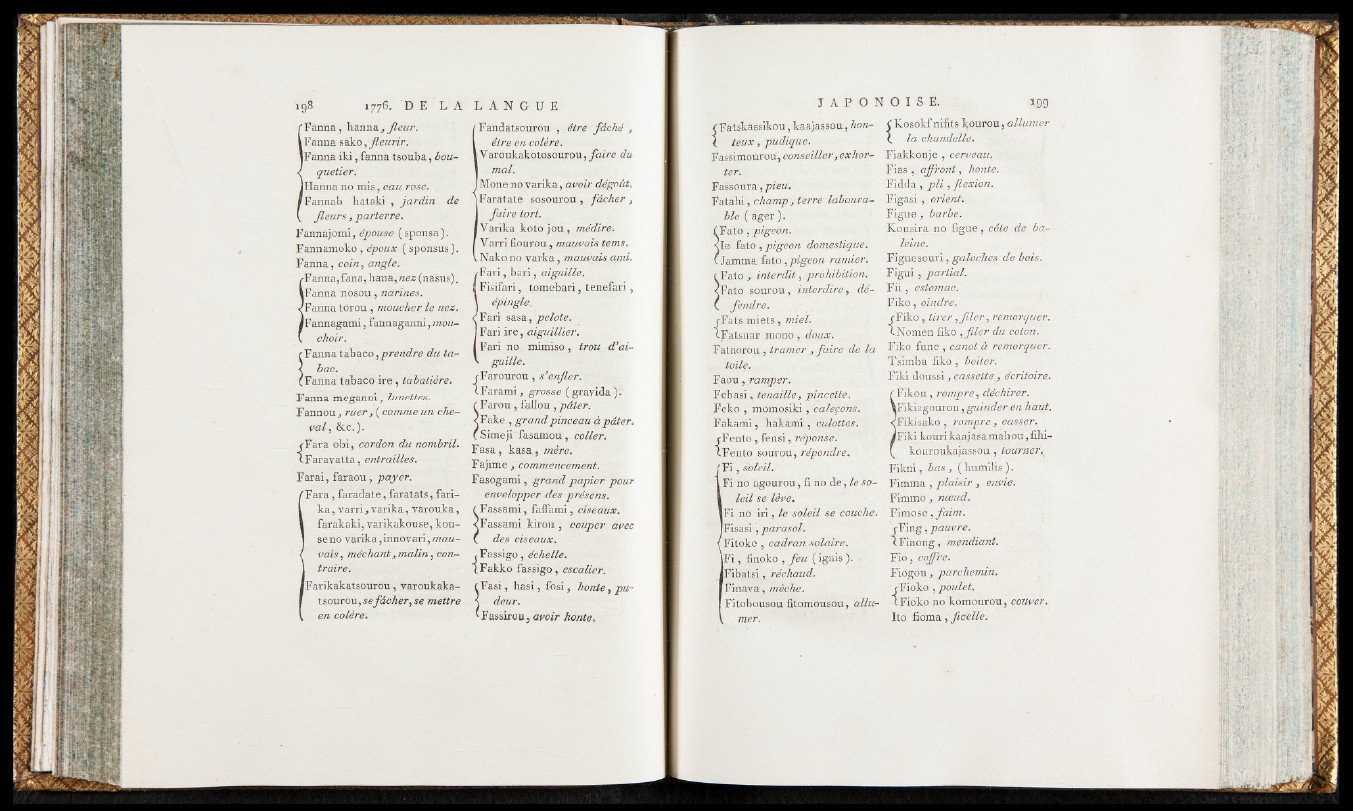 198 1776. DE LA LANGUE
Fanna, hanna, fleur.
Fanna sako, fleurir.
Fanna iki, fanna tsouba, bou-
quetier.
Hanna no mis, eau rose.
Fannab hataki, jardin de
fleurs, parterre.
Fannajomi, épouse (sponsa).
Fannamoko, époux (sponsus).
Fanna, coin, angle.
Fanna, fana, hana, nez (nasus).
Fanna nosou, narines.
Fanna torou, moucher le nez.
Fannagami, fannaganni, mou-
choir.
Fanna tabaco, prendre du ta-
bac.
Fanna tabaco ire, tabatière.
Fanna meganni, lunettes.
Fannou, ruer, (comme un che-
val, &c.).
Fara obi, cordon du nombril.
Faravatta, entrailles.
Farai, faraou, payer.
Fara, faradate, faratats, fari-
ka, varri, varika, varouka,
farakaki, varikakouse, kou-
se no varika, innovari, mau-
vais, méchant, malin, con-
traire.
Farikakatsourou, varoukaka-
tsourou, se fâcher, se mettre
en colère.
Fandatsourou, être fâché,
être en colère.
Varoukakotosourou, faire du
mal.
Mone no varika, avoir dégoût.
Faratate sosourou, fâcher,
faire tort.
Varika koto jou, médire.
Varri fiourou, mauvais tems.
Nako no varka, mauvais ami.
Fari, bari, aiguille.
Fisifari, tomebari, tenefari,
épingle.
Fari sasa, pelote.
Fari ire, aiguillier.
Fari no mimiso, trou d'ai-
guille.
Farourou, s'enfler.
Farami, grosse (gravida).
Farou, fallou, pâter.
Fake, grand pinceau à pâter.
Simeji fasamou, coller.
Fasa, kasa, mère.
Fajime, commencement.
Fasogami, grand papier pour
envelopper des présens.
Fassami, faffami, ciseaux.
Fassami kirou, couper avec
des ciseaux.
Fassigo, échelle.
Fakko fassigo, escalier.
Fasi, hasi, fosi, honte, pu-
deur.
Fassirou, avoir honte.
JAPONOISE. 199
Fatskassikou, kaajassou, hon-
teux, pudique.
Fassimourou, conseiller, exhor-
ter.
Fassoura, pieu.
Fatahi, champ, terre laboura-
ble (ager).
Fato, pigeon.
Ie fato, pigeon domestique.
Jamma fato, pigeon ramier.
Fato, interdit, prohibition.
Fato sourou, interdire, dé-
fendre.
Fats miets, miel.
Fatsnar mono, doux.
Fatnorou, tramer, faire de la
toile.
Faou, ramper.
Febasi, tenaille, pincette.
Feko, momosiki, caleçons.
Fakami, hakami, culottes.
Fento, fensi, réponse.
Fento sourou, répondre.
Fi, soleil.
Fi no agourou, fi no de, le so-
leil se lève.
Fi no iri, le soleil se couche.
Fisasi, parasol.
Fitoke, cadran solaire.
Fi, finoko, feu (ignis).
Fibatsi, réchaud.
Finava, mèche.
Fitobousou fitomousou, allu-
mer.
Kosokf nifits kourou, allumer
la chandelle.
Fiakkonje, cerveau.
Fias, affront, honte.
Fidda, pli, flexion.
Figasi, orient.
Figue, barbe.
Konsira no figue, côte de ba-
leine.
Figuesouri, galoches de bois.
Figui, partial.
Fii, estomac.
Fiko, oindre.
Fiko, tirer, filer, remorquer.
Nomen fiko, filer du coton.
Fiko fune, canot à remorquer.
Tsimba fiko, boiter.
Fiki doussi, cassette, écritoire.
Fikou, rompre, déchirer.
Fikiagourou, guinder en haut.
Fikisako, rompre, casser.
Fiki kouri kaajasamahou, fihi-
kouroukajassou, tourner.
Fikni, bas, (humilis).
Fimma, plaisir, envie.
Fimmo, nœud.
Fimose, faim.
Fing, pauvre.
Finong, mendiant.
Fio, coffre.
Fiogou, parchemin.
Fioko, poulet.
Fioko no komourou, couver.
Ito fioma, ficelle.